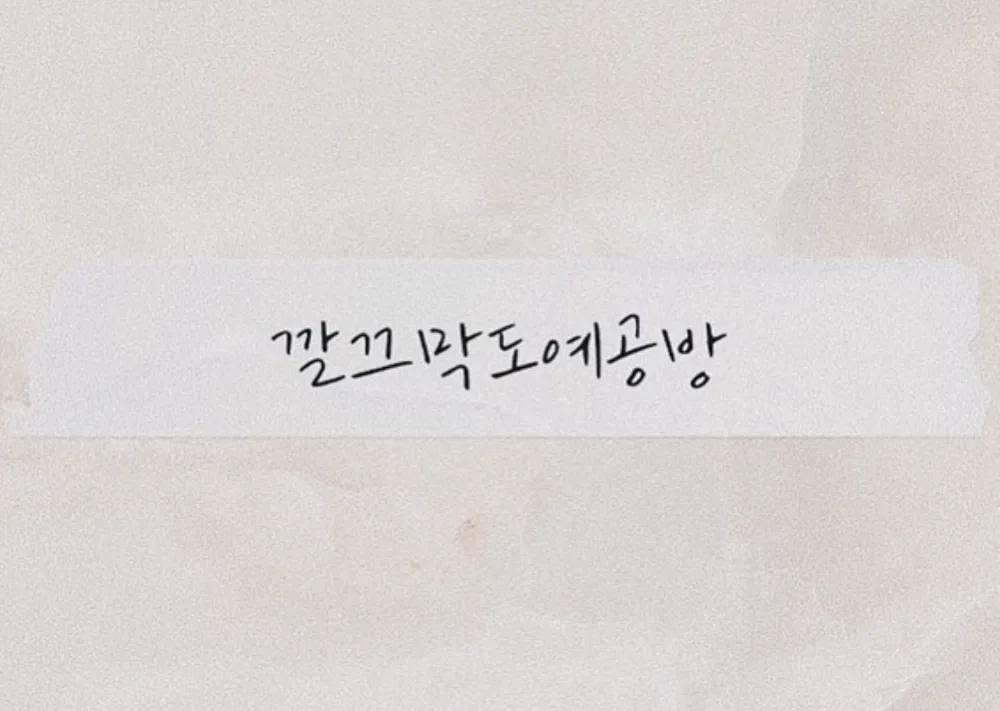 깔끄막도예공방